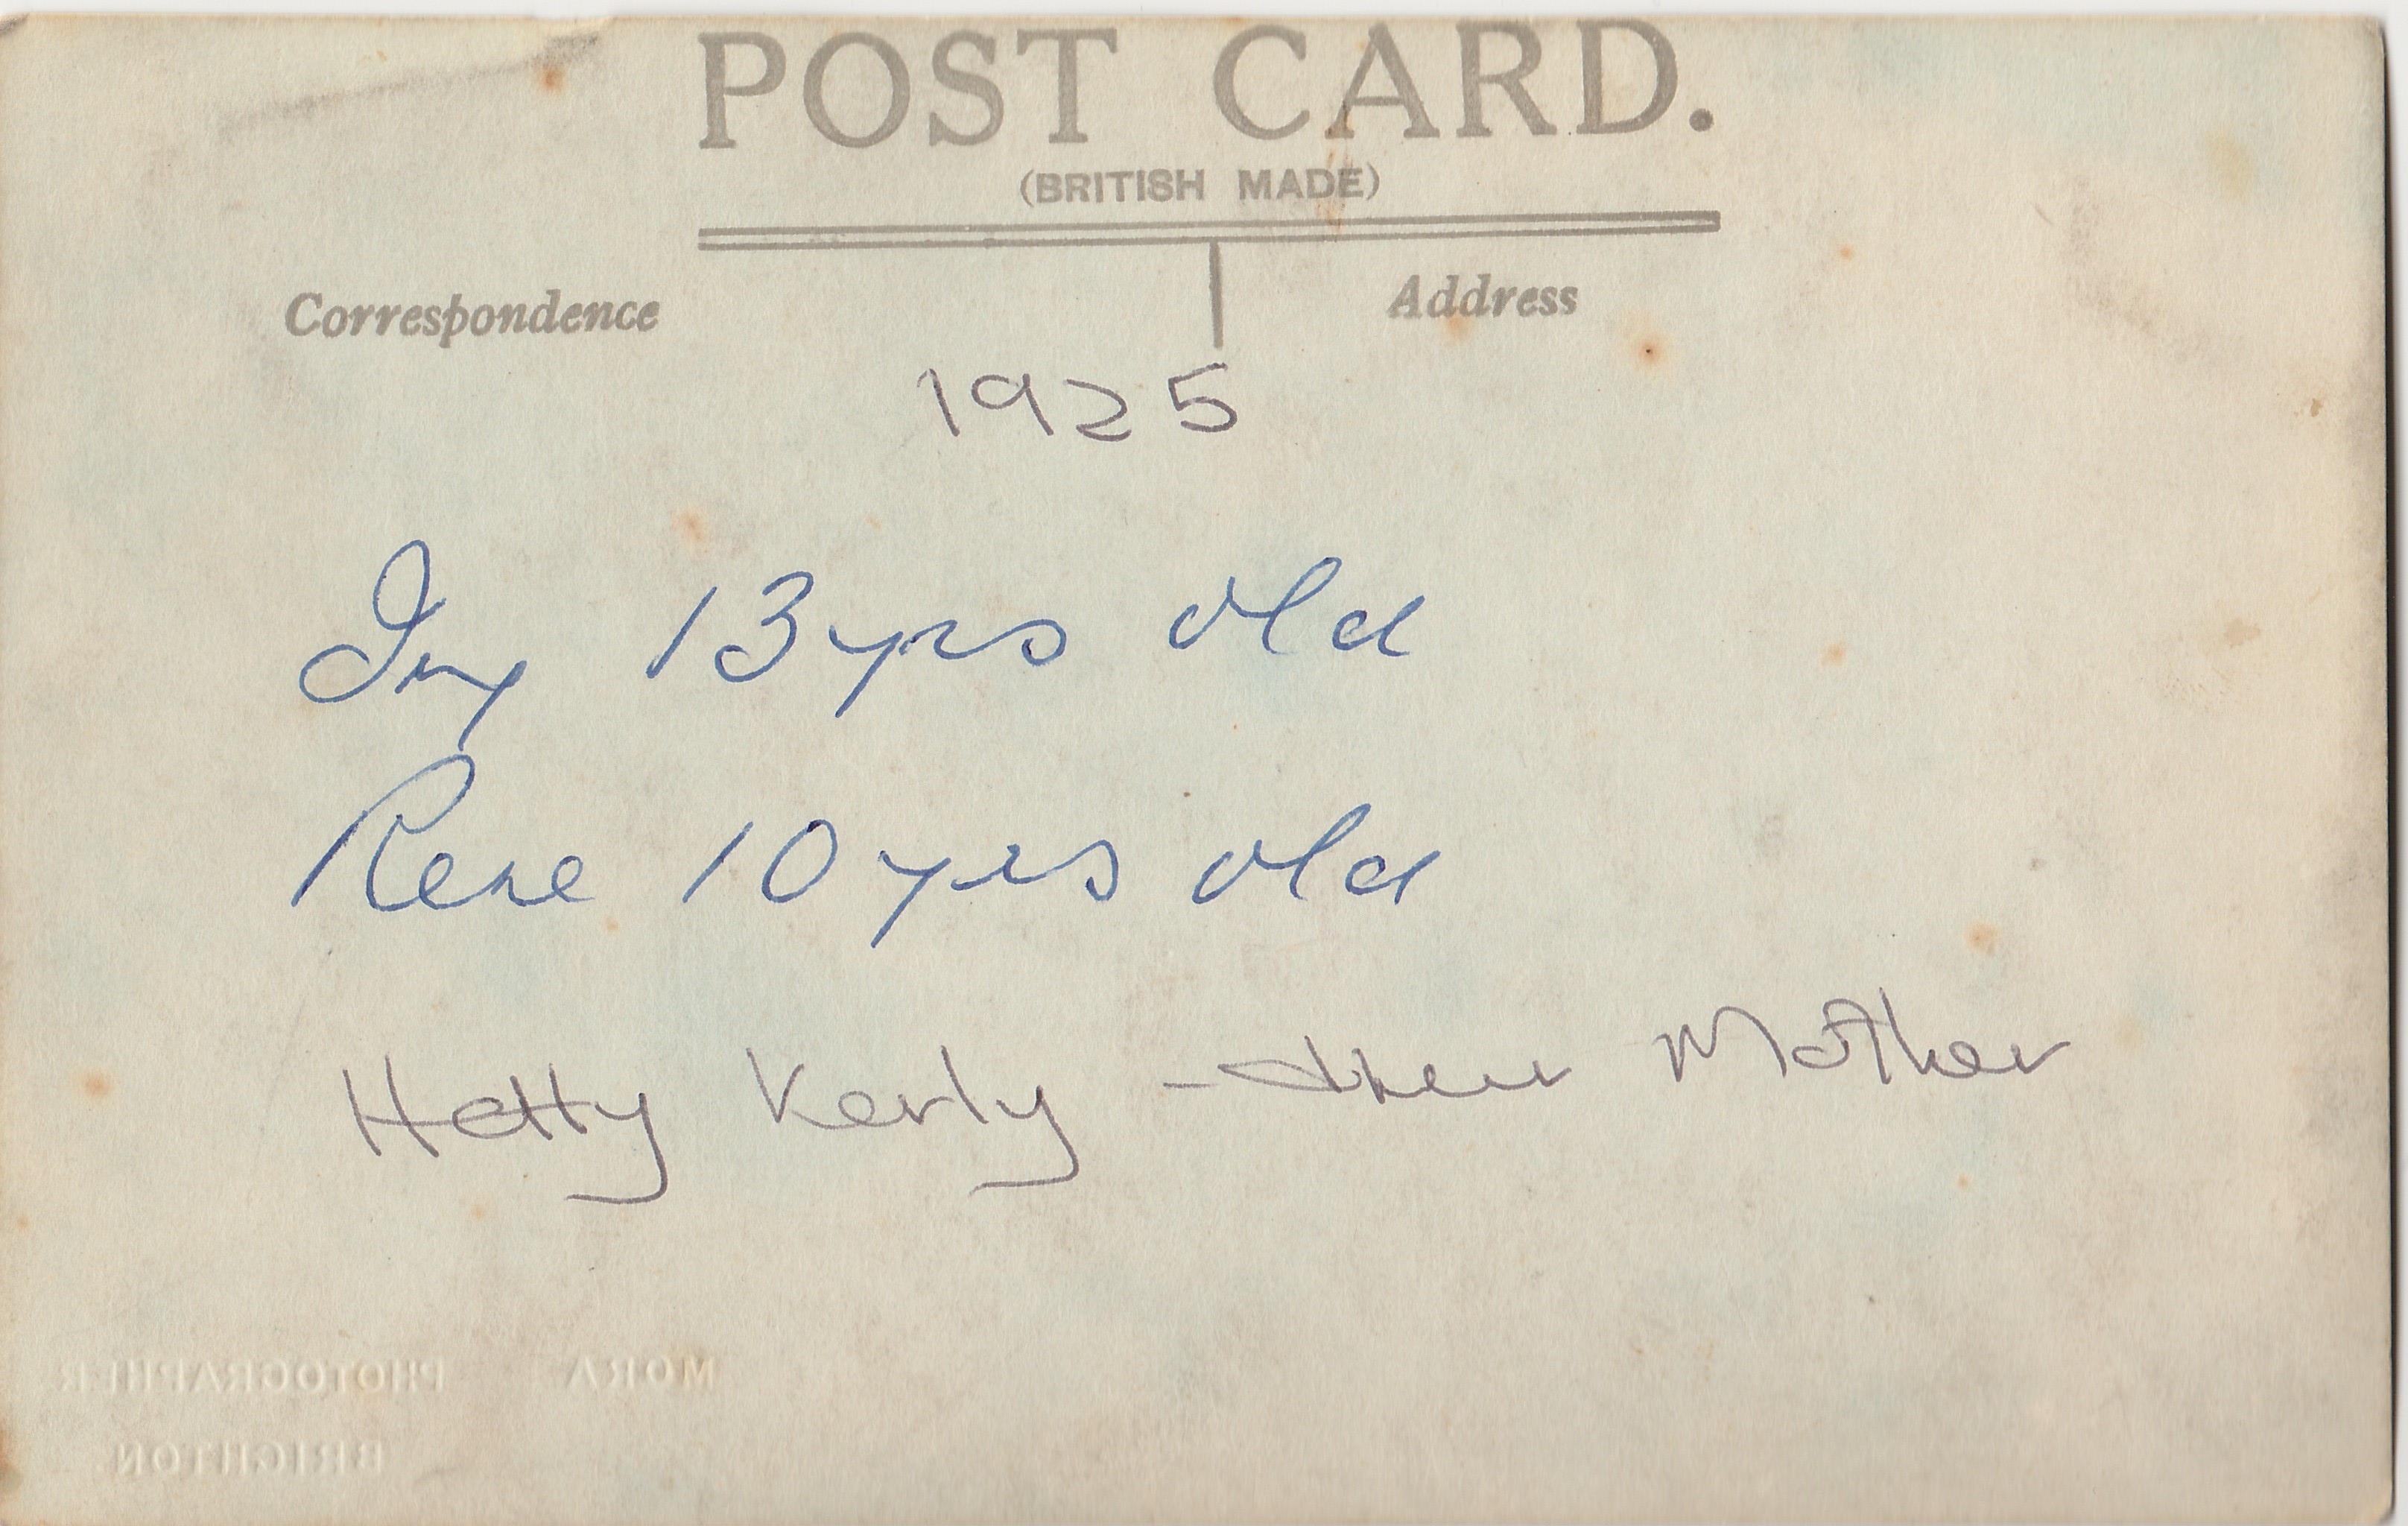 POST CARD.
(BRITISH MADE)
Correspondence
Address
1925
Ivy 13 yrs old
Rene 10 yrs old
Hetty Kerly - their Mother
MORA PHOTOGRAPHER
BRIGHTON